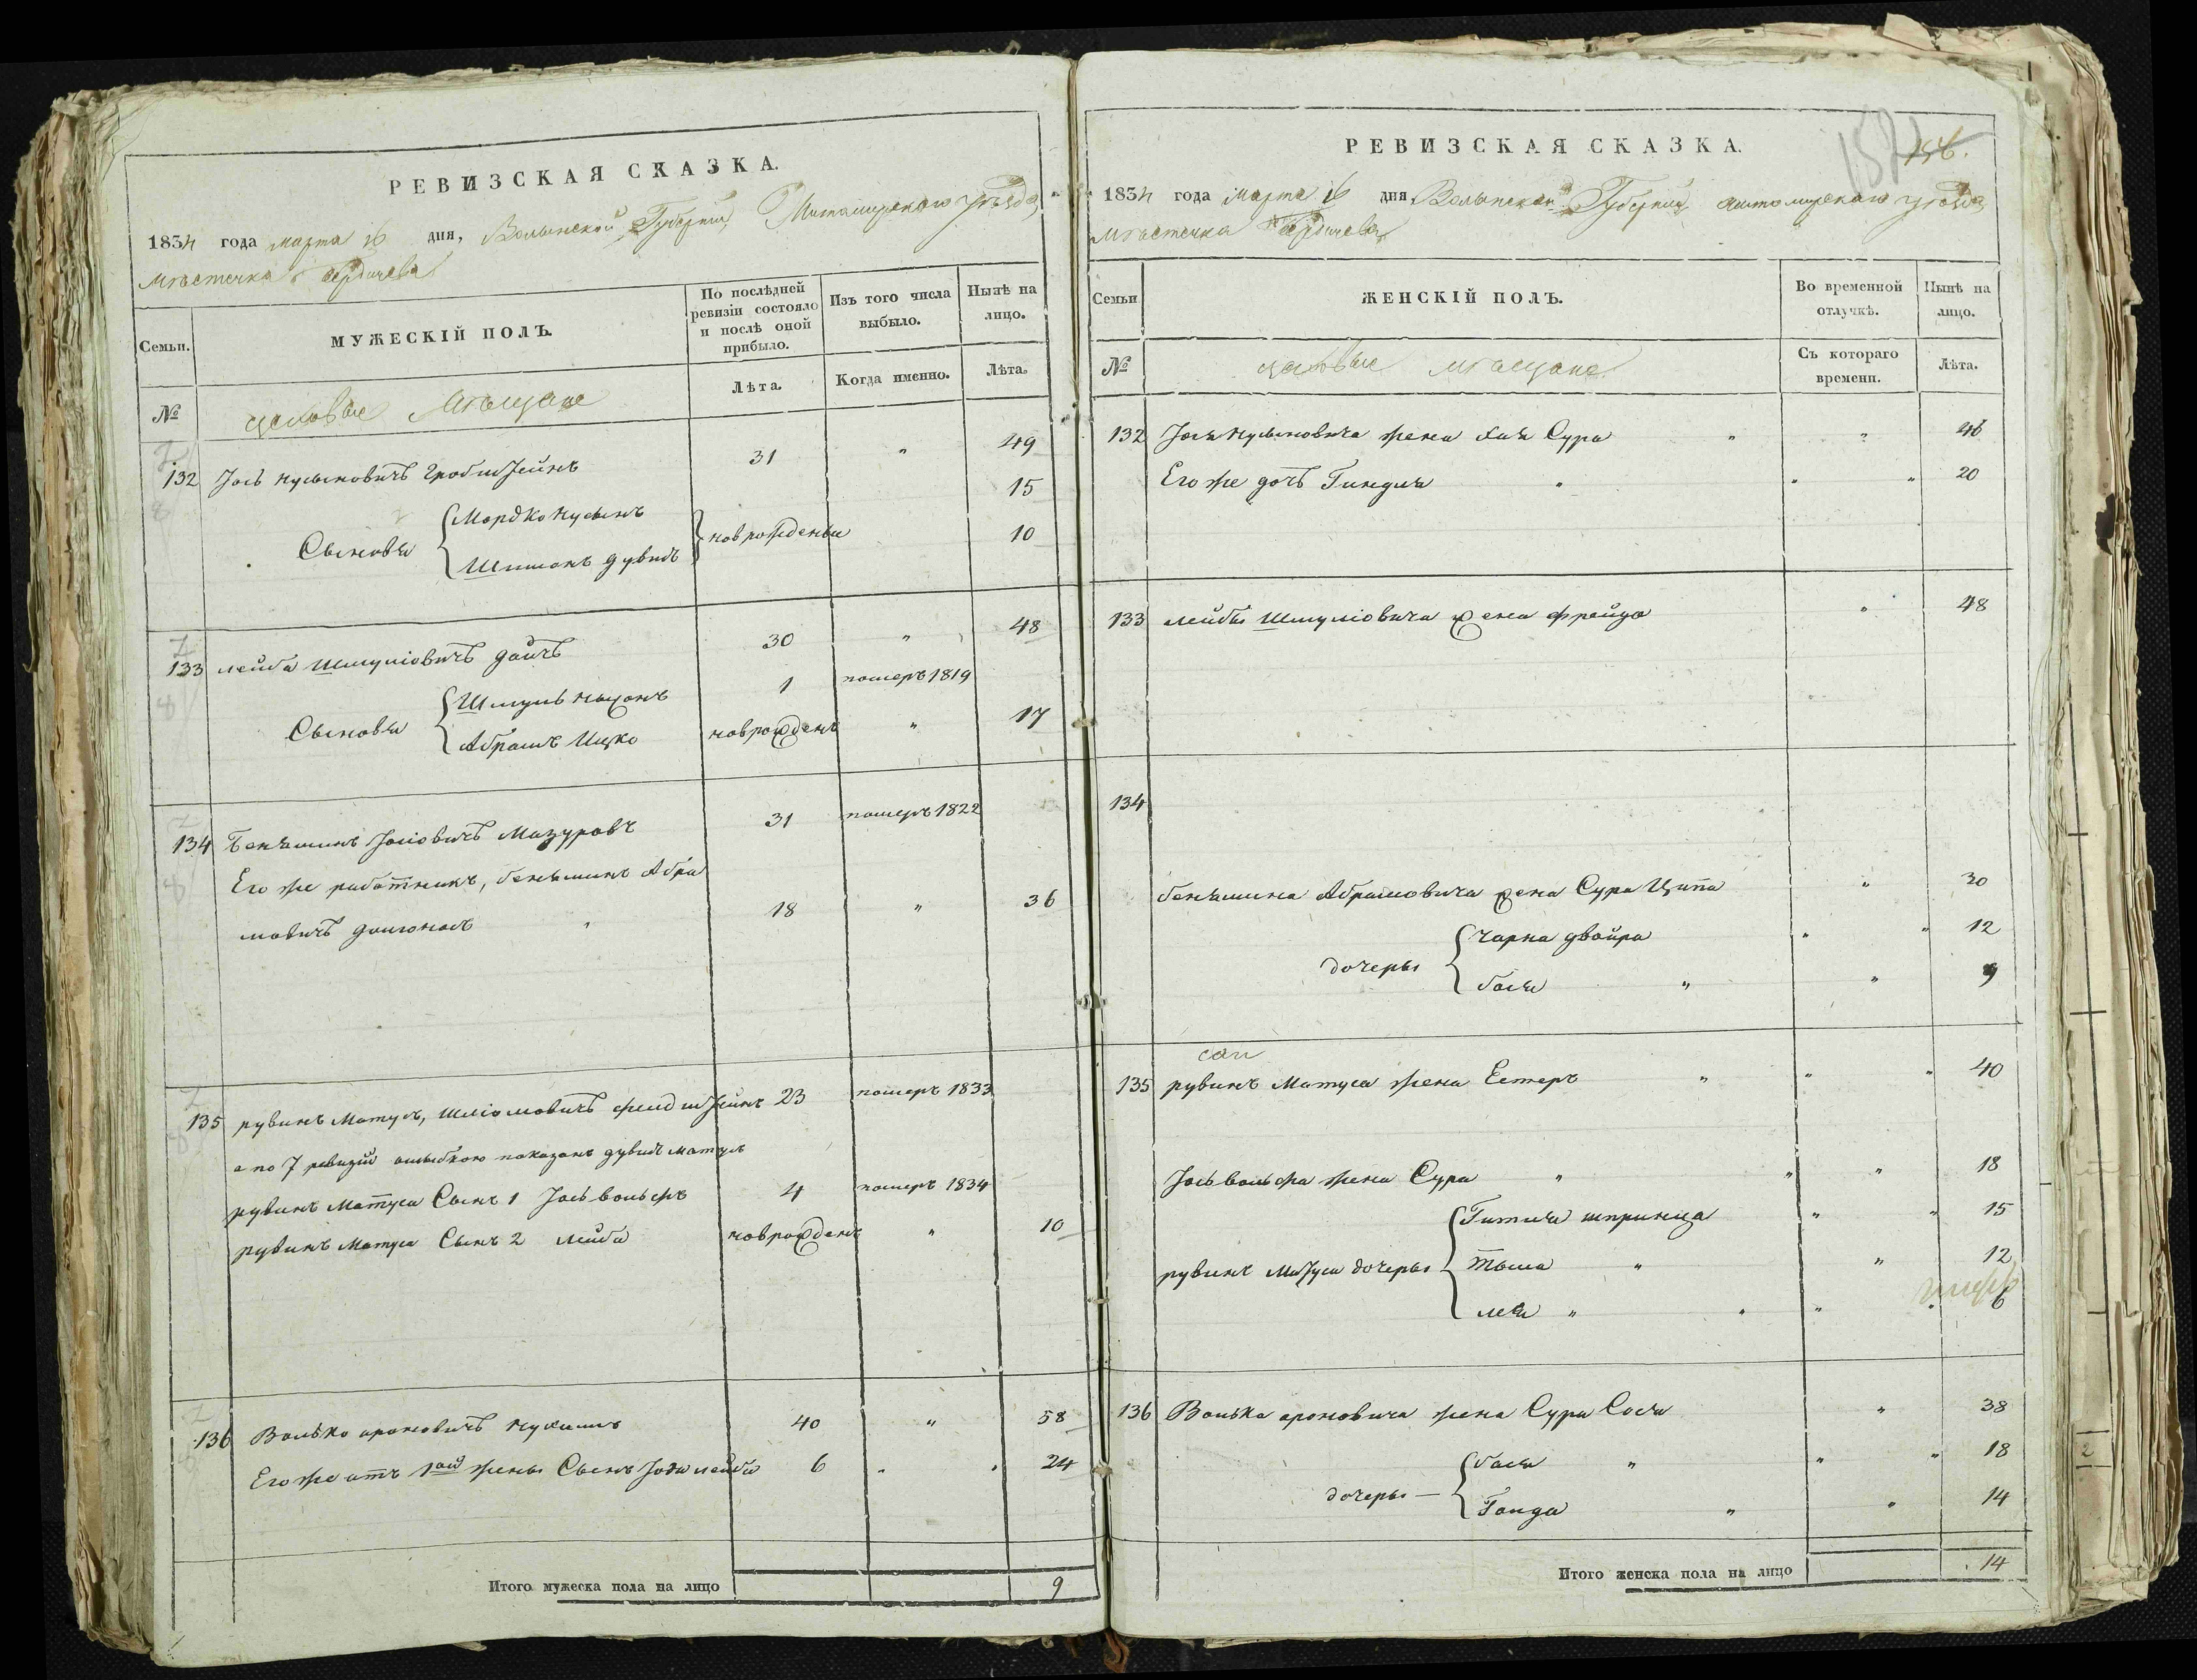 РЕВИЗСКАЯ СКАЗКА.
1834 года марта 16 дня, Волынской Губернии, Житомирскаго уезда,
мѣстечка Бердичева
Семьи.
МУЖЕСКІЙ ПОЛЪ.
По послѣдней ревизіи состояло и послѣ оной прибыло.
Изъ того числа выбыло.
Нынѣ на лицо.
№
Лѣта.
Когда именно.
Лѣта.
цеховые Мѣщане
132 Іось Нусыновичъ Гробштейнъ 31 " 49
Мордко Нусынъ 15
Сыновья новрожденные
Шимонъ дувидъ 10
133 лейба Шмуліовичъ дайчъ 30 " 48
Шмуль 1 померъ 1819
Сыновья
Абрамъ Ицко новрожденъ " 17
134 Беньяминъ Іосіовичъ Мазуровъ 31 померъ 1822
Его же работникъ, беньяминъ Абра
мовичъ 18 " 36
135 рувинъ Матусъ, Шліомовичъ фельдштейнъ 23 померъ 1833
а по 7 ревизіи ошибкою показанъ дувидъ матусъ
рувинъ Матуса Сынъ 1 Іось вольфъ 4 померъ 1834
рувинъ Матуса Сынъ 2 лейба новрожденъ " 10
136 Волько ароновичъ 40 " 58
Его же отъ 1ой жены Сынъ лейба 6 " 24
Итого мужеска пола на лицо 9
РЕВИЗСКАЯ СКАЗКА.
156.
1834 года марта 16 дня, Волынской Губерніи Житомирскаго уезда
мѣстечка Бердичева
Семьи
ЖЕНСКІЙ ПОЛЪ.
Во временной отлучкѣ.
Нынѣ на лицо.
№
Съ котораго времени.
Лѣта.
цеховые мѣщане
132 Іося Нусыновича жена хая Сура " " 46
Его же дочь Гиндля " " " 20
133 лейбы Шмуліовича жена фрейда " 48
134
беньямина Абрамовича жена Сура Ципа " 30
Чарна двойра " " 12
дочеры
бася " " 9
135 рувинъ Матуса жена Естеръ " " " 40
Іось вольфа жена Сура " " " 18
Гитля шпринца " " 15
рувинъ Матуса дочеры
тыма " " 12
лея " " " " 6
136 Волька ароновича жена Сура Сося " 38
бася " " " 18
дочеры —
Голда " " 14
Итого женска пола на лицо 14
2